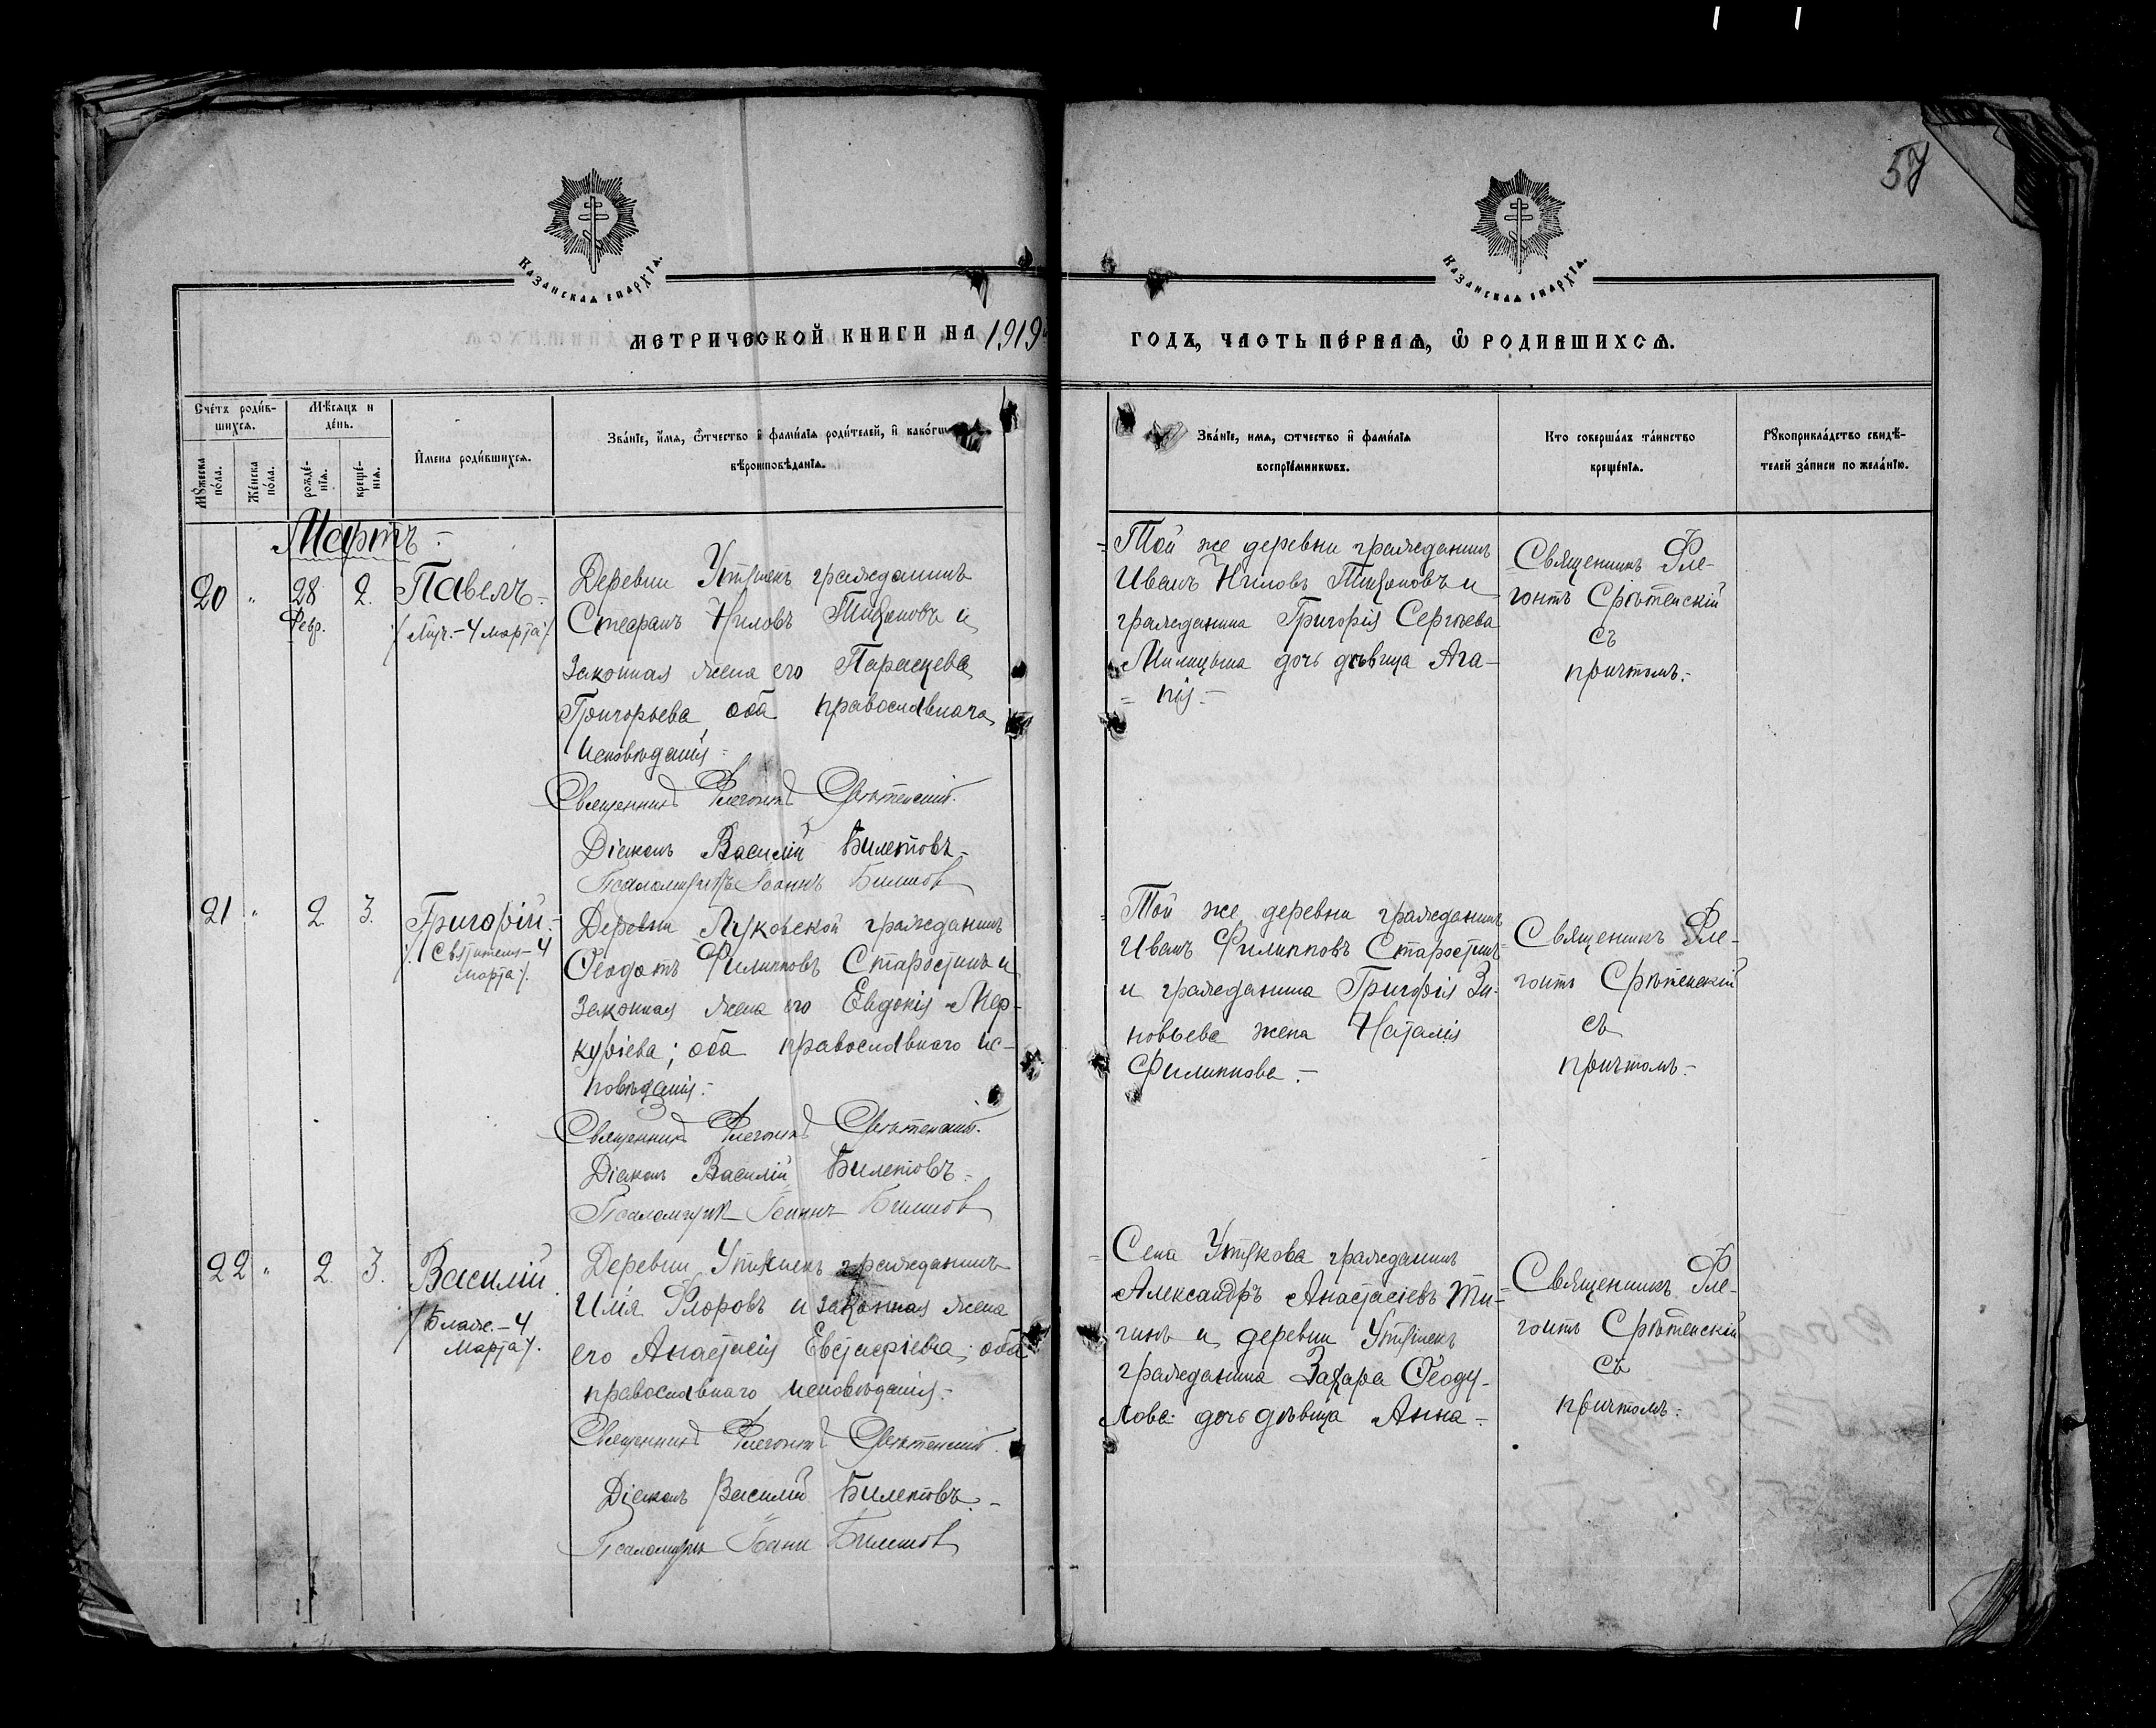 57
Казанская епархїа.
Казанская епархїа.
метрической книги на 1919й
годъ, часть первая, ѽ родившихся.
Счетъ родив-
шихся.
Мужеска пола.
Женска пола.
Мѣсяцъ и
день.
рожде-
нїя.
креще-
нїя.
Имена родившихся.
Званїе, имя, ѿтчество и фамилїя родителей, и какогѡ
вѣроисповѣданїя.
Званїе, имя, ѿтчество и фамилїя
воспрїемникωвъ.
Кто совершалъ таинство
крещенїя.
Рукоприкладство свидѣ-
телей записи по желанїю.
Мартъ -
20 " 28 Февр. 2. Павелъ-
/ Муч.-4 марта /.
Деревни гражданинъ
Стефанъ Ниловъ Тихоновъ и
законная жена его Параскева
Григорьева оба православнаго
исповѣданія -
Священникъ Флегонтъ Срѣтенскій.
Діаконъ Василій Билетовъ-
Псаломщикъ Іоаннъ Билетов
= Той же деревни гражданинъ
Иванъ Ниловъ Тихоновъ и
гражданина Григорія Сергѣева
Милицына дочь дѣвица Ага-
= пія.-
Священникъ Фле-
гонтъ Срѣтенскій
съ
причтомъ.-
21 " 2. 3. Григорій.-
/. Святителя-4
марта /.
Деревни Луковской гражданинъ
Ѳеодотъ Филипповъ Старостинъ и
законная жена его Евдокія Мер-
куріева; оба православнаго ис-
повѣданія.-
Священникъ Флегонтъ Срѣтенскій.
Діаконъ Василій Билетовъ-
Псаломщик Іоаннъ Билетов
= Той же деревни гражданинъ
Иванъ Филипповъ Старостинъ
и гражданина Григорія Зи-
новьева жена Наталія
Филиппова.-
Священникъ Фле-
гонтъ Срѣтенскій
съ
причтомъ.-
22 " 2. 3. Василій.
/ Блаж.-4
марта /.
Деревни гражданинъ
Илія Флоровъ и законная жена
его Анастасія Евстафіева; оба
православнаго исповѣданія.-
Священникъ Флегонтъ Срѣтенскій.
Діаконъ Василій Билетовъ.-
Псаломщик Іоанн Билетов
= Села Утякова гражданинъ
Александръ Анастасіевъ Ти-
гинъ и деревни
гражданина Захара Ѳеоду-
лова дочь дѣвица Анна.-
Священникъ Фле-
гонтъ Срѣтенскій
съ
причтомъ.-